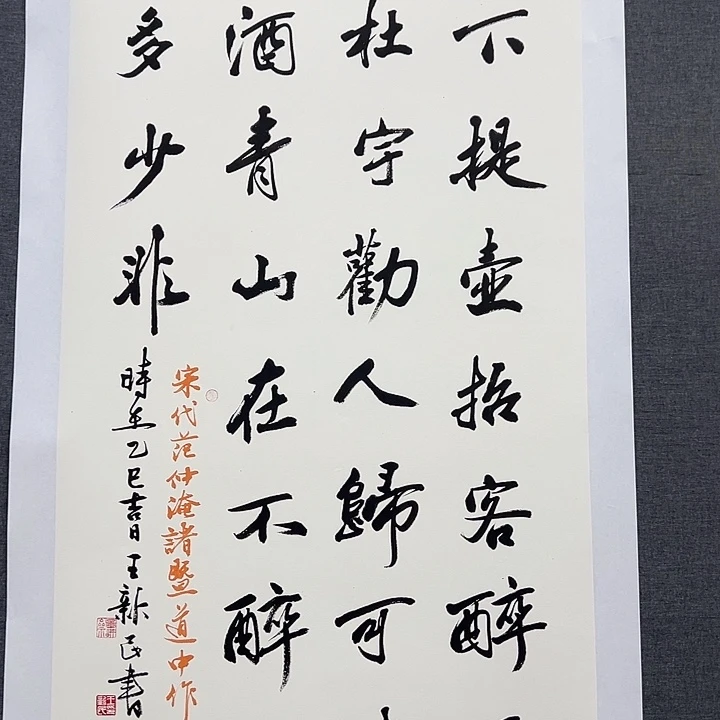 下提壺招客醉
杜宇勸人歸可
酒青山在不醉
多少非
宋代范仲淹諸暨道中作
時在乙巳吉日王新民書